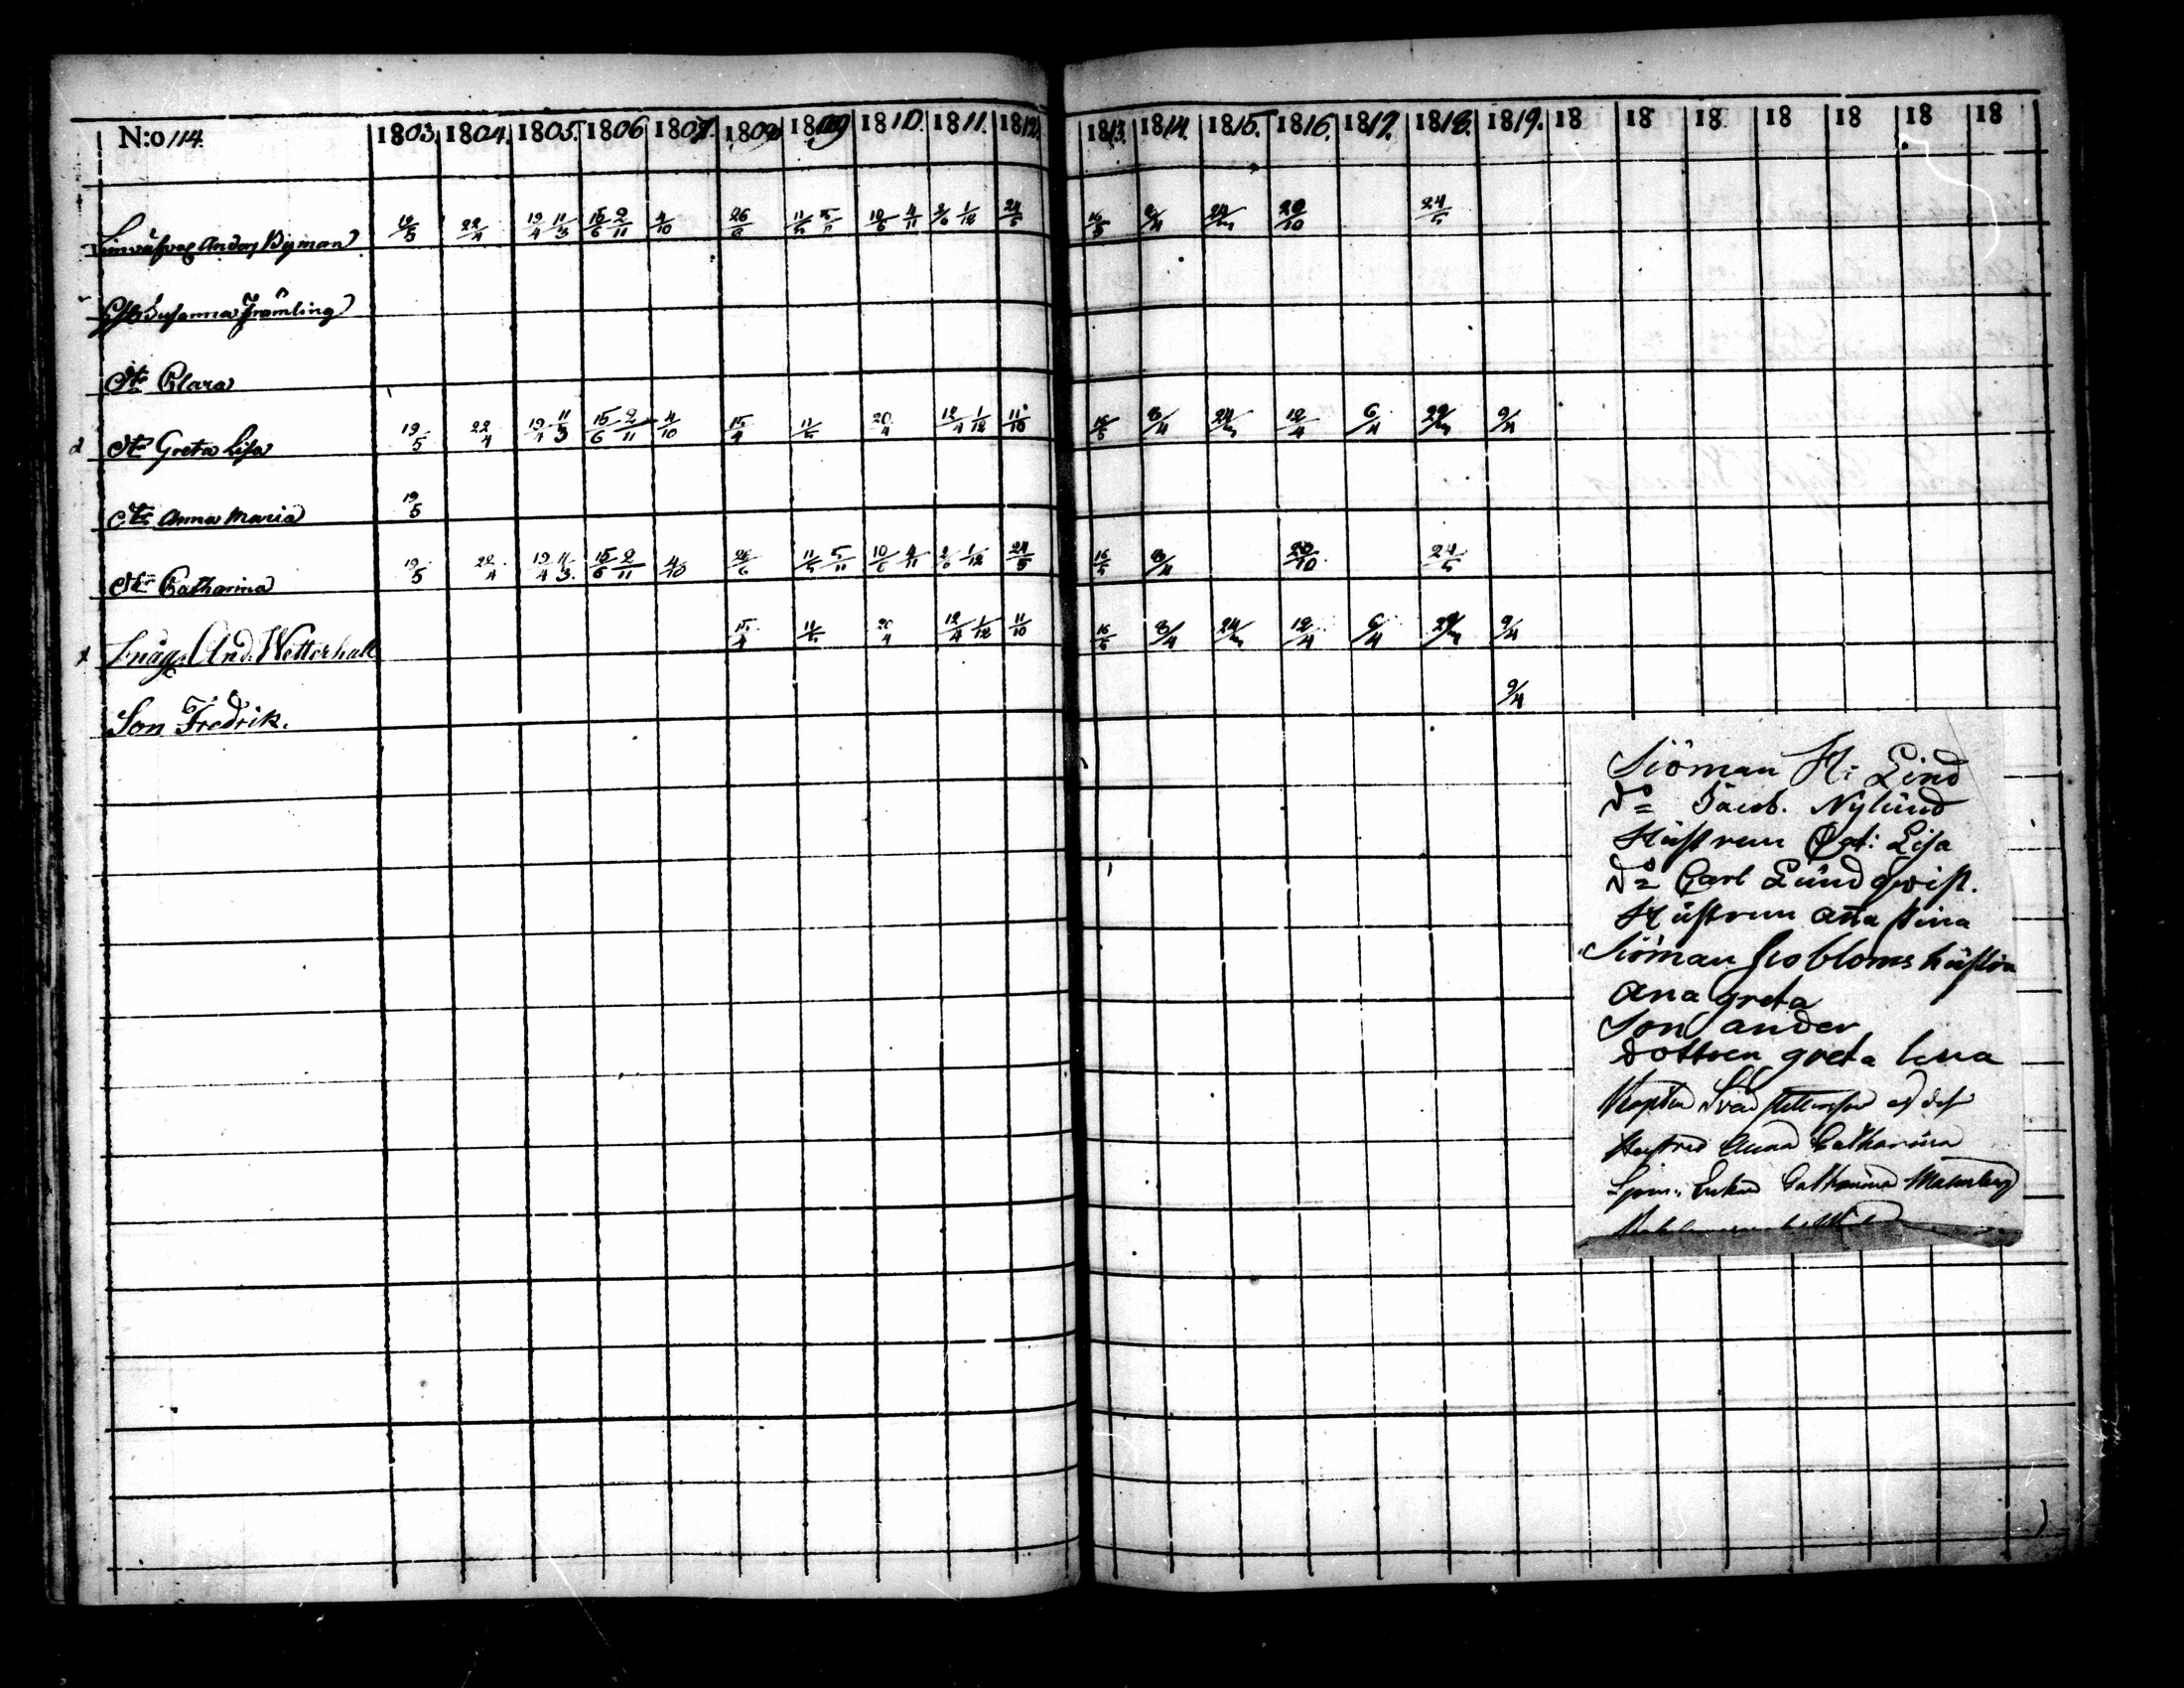 N:o 114. 1803. 1804. 1805. 1806 1807. 1808 1809 1810. 1811. 1812. 1813. 1814. 1815. 1816. 1817. 1818. 1819. 18 18 18 18 18 18 18
Linväfvar Anders Byman 19/5 22/4 19/4 11/3 15/6 2/11 4/10 26/6 11/5 5/11 10/6 4/11 2/6 1/12 24/5 16/5 3/4 24/3 20/10 24/5
Susanna Främling
Dtr Clara
Dtr Greta Lisa 19/5 22/4 19/4 11/3 15/6 2/11 4/10 15/4 11/5 20/4 12/4 1/12 11/10 16/5 3/4 24/3 12/4 6/4 29/3 9/4
Dtr Anna Maria 19/5
Dtr Catharina 19/5 22/4 19/4 11/3 15/6 2/11 4/10 26/6 11/5 5/11 10/6 4/11 2/6 1/12 24/5 16/5 3/4 20/10 24/5
And. Wetterhall 15/4 11/5 20/4 12/4 1/12 11/10 16/5 3/4 24/3 12/4 6/4 29/3 9/4
Son Fredrik. 9/4
Siöman H: Lind
do Jacob. Nylund
Hustrun Cat: Lisa
do Carl Lundqwist.
Hustrun Ana Stina
Siöman hustru
Ana greta
Son ander
dottren greta lena
Sven
Hustru Anna Catharina
Enkan Catharina Malmberg